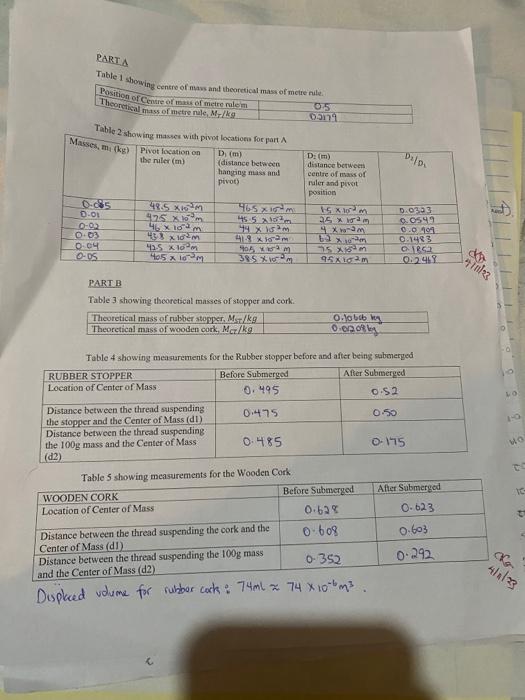 PART A
Table 1 showing centre of mass and theoretical mass of metre rule.
Position of Centre of mass of metre rule/m 0.5
Theoretical mass of metre rule, Mr/kg
Table 2 showing masses with pivot locations for part A
Masses, m₁ (kg) Pivot location on the ruler (m) D₁ (m) (distance between hanging mass and pivot) D₂ (m) (distance between centre of mass of ruler and pivot position D₂/D₁
48.5 x10⁻²m 46.5 x 10⁻²m 1.5 x 10⁻²m 0.0323
0.01 47.5 x 10⁻²m 45.5 x 10⁻²m 2.5 x 10⁻²m 0.0549
0.02 46 x 10⁻²m 44 x 10⁻²m 4 x 10⁻²m 0.0909
0.03 43.8 x 10⁻²m 41.8 x 10⁻²m 6.2 x 10⁻²m 0.1483
0.04 42.5 x 10⁻²m 40.5 x 10⁻²m 7.5 x 10⁻²m 0.1852
0.05 40.5 x 10⁻²m 38.5 x 10⁻²m 9.5 x 10⁻²m 0.2468
4/11/23
PART B
Table 3 showing theoretical masses of stopper and cork.
Theoretical mass of rubber stopper, MST/kg kg
Theoretical mass of wooden cork, MCT/kg kg
Table 4 showing measurements for the Rubber stopper before and after being submerged
RUBBER STOPPER Before Submerged After Submerged
Location of Center of Mass 0.495 0.52
Distance between the thread suspending the stopper and the Center of Mass (d1) 0.475 0.50
Distance between the thread suspending the 100g mass and the Center of Mass (d2) 0.485 0.175
Table 5 showing measurements for the Wooden Cork
WOODEN CORK Before Submerged After Submerged
Location of Center of Mass 0.628 0.623
Distance between the thread suspending the cork and the Center of Mass (d1) 0.608 0.603
Distance between the thread suspending the 100g mass and the Center of Mass (d2) 0.352 0.292
4/11/23
Displaced volume for rubber cork : 74ml ≈ 74 x 10⁻⁶m³.